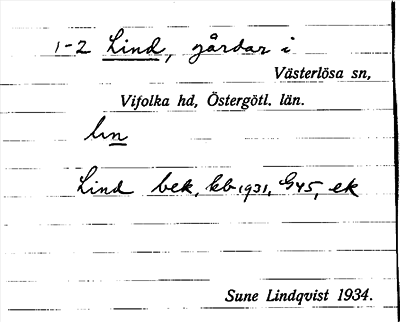 1-2 Lind, gårdar i
Västerlösa sn,
Vifolka hd, Östergötl. län.
Lind bek, kb 1931, G45, ek
Sune Lindqvist 1934.